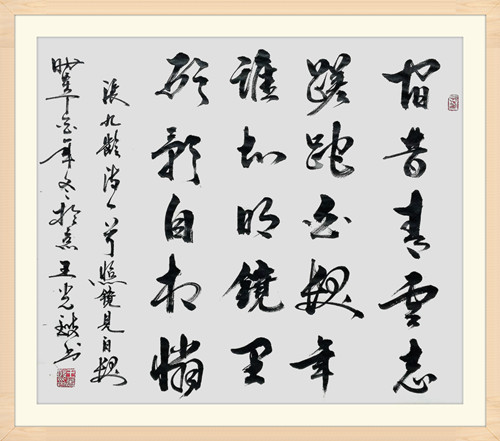 宿昔青雲志
蹉跎白髮年
誰知明鏡里
形影自相憐
張九齡詩一首照鏡見白髮
年冬於京王光書